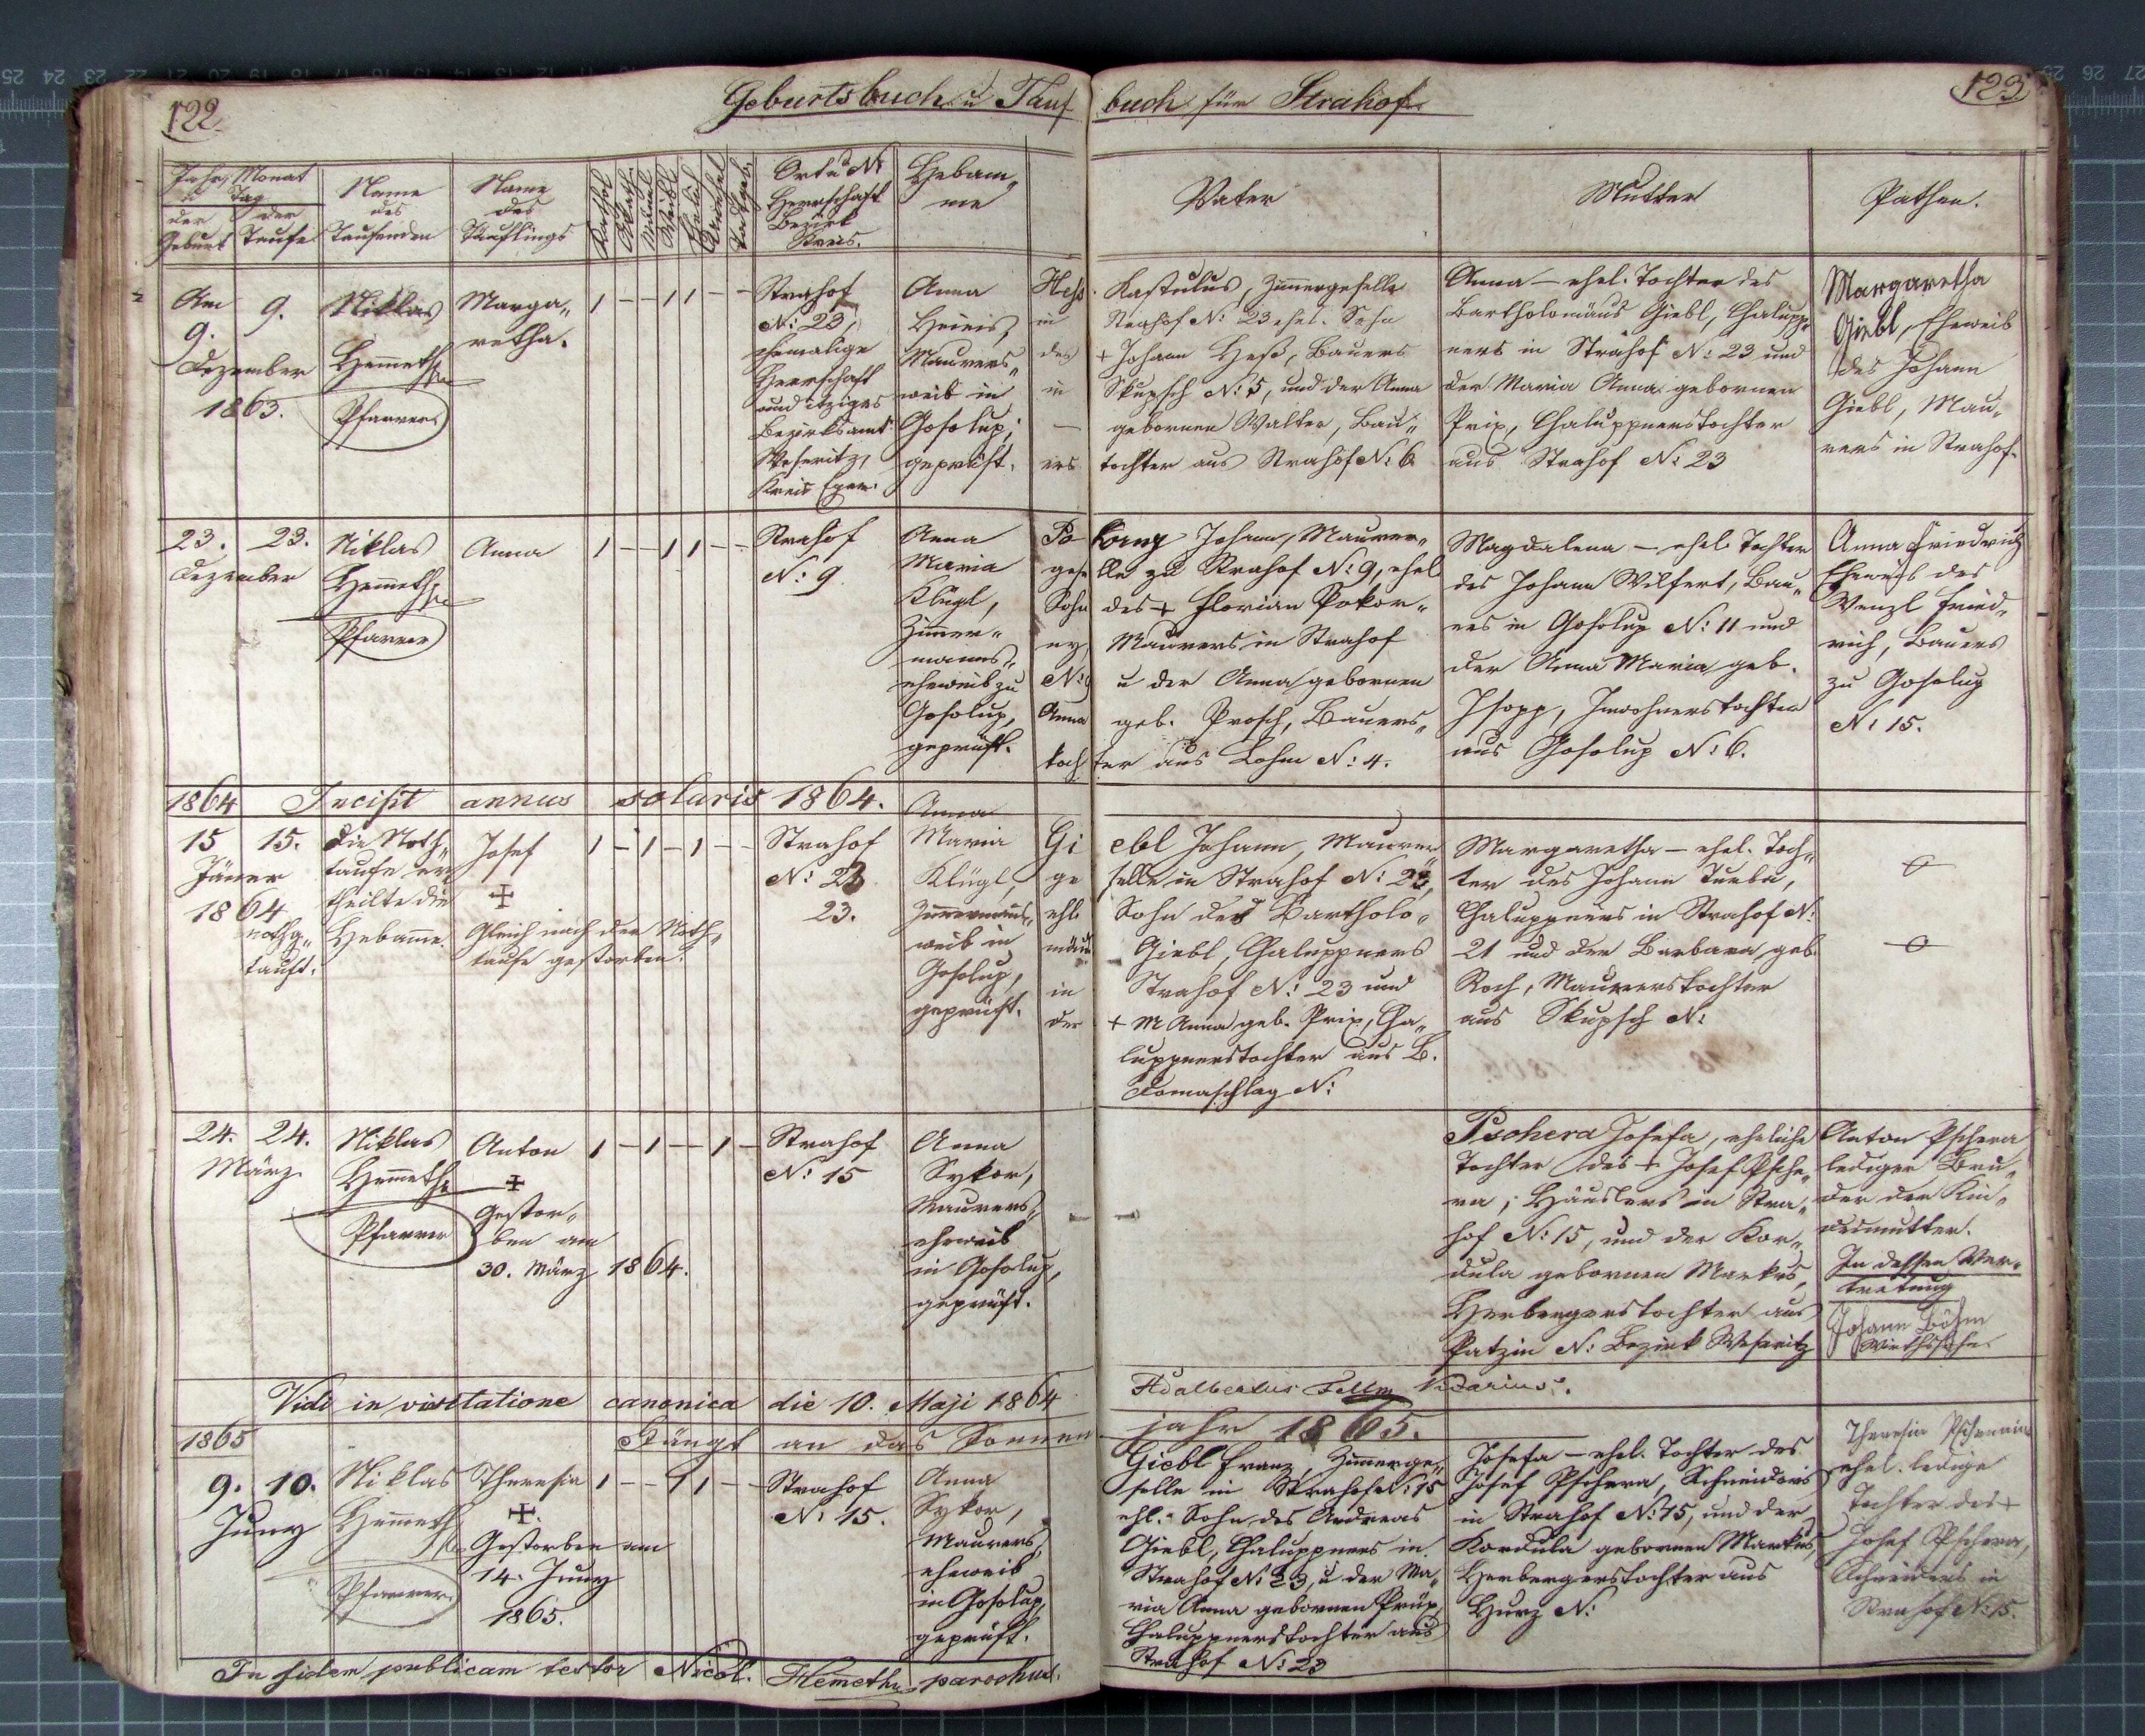 122
Geburtsbuch u Tauf
buch für Strahof
123
Jahr, Monat
u Tag
der Geburt
der Taufe
Name
des
Taufenden
Name
des
Täuflings
Kathol
Männl
Weibl
Ehelich
Unehel
Todtgeb.
Ort u N:
Herrschaft
Bezirk
Kreis.
Hebam„
me
Vater
Mutter
Pathen.
Am
9.
Dezember
1863.
9.
Niklas
Hem̄eth
Pfarrer
Marga„
retha.
Strahof
N: 23,
ehemalige
Herrschaft
und itziges
Bezirksamt
Weseritz,
Kreis Eger.
Anna
Maurers„
weib in
Gosolup,
geprüft.
Heß Kastulus, Zim̄ergeselle
in Strahof N: 23 ehel. Sohn
des + Johann Heß, Bauers
in Skupsch N: 5, und der Anna
— gebornen Walter, Bau„
ers tochter aus Strahof N: 6
Anna – ehel. Tochter des
Bartholomäus Giebl, Chalupp„
ners in Strahof N: 23 und
der Maria Anna gebornen
Prix, Chaluppnerstochter
aus Strahof N: 23
Margaretha
Giebl, Eheweib
des Johann
Giebl, Mau„
rers in Strahof.
23.
Dezember
23.
Niklas
Hem̄eth
Pfarrer
Anna
Strahof
N: 9
Anna
Maria
Klügl,
Zim̄er„
manns„
eheweib zu
Gosolup,
geprüft.
Pokorny Johann, Maurer„
geselle zu Strahof N: 9, ehel
Sohn des + Florian Pokor„
ny, Maurers in Strahof
N: 9 u der Anna gebornen
Anna geb. Prosch, Bauers„
tochter aus Lohm N: 4.
Magdalena – ehel. Tochter
des Johann Wilfert, Bau„
ers in Gosolup N: 11 und
der Anna Maria geb.
Ihopp, Inwohnerstochter
aus Gosolup N: 6.
Anna Friedrich
Eheweib des
Wenzl Fried„
rich, Bauers
zu Gosolup
N: 15.
1864 Incipit annus solaris 1864.
15
Jäner
1864
15.
nothg„
tauft.
Die Noth„
taufe er„
theilte die
Hebam̄e.
Josef
+
Gleich nach der Noth„
taufe gestorben.
Strahof
N: 23
23.
Anna
Maria
Klügl,
Zim̄ermanns„
weib in
Gosolup,
geprüft.
Giebl Johann, Maurer„
geselle in Strahof N: 23,
ehl. Sohn des Bartholo„
mäus Giebl, Chaluppners
in Strahof N: 23 und
der + M Anna geb. Prix, Cha„
luppnerstochter aus B.
Domaschlag N:
Margaretha – ehel. Toch„
ter des Johann
Chaluppners in Strahof N:
21 und der Barbara geb.
Koch, Maurerstochter
aus Skupsch N:
24.
März
24.
Niklas
Hem̄eth
Pfarrer
Anton
+
Gestor„
ben am
30. März 1864.
Strahof
N: 15
Anna
Sykor,
Maurers„
eheweib
in Gosolup,
geprüft.
Pschera Josefa, eheliche
Tochter des + Josef Psche„
ra, Häuslers in Stra„
hof N: 15, und der Kor„
dula gebornen Markus,
Herbergerstochter aus
Patzin N: Bezirk Weseritz
Anton Pschera
lediger Bru„
der der Kin„
desmutter.
In dessen Ver„
tretung
Johann Böhm
Wirthssohn.
Vidi in visitatione canonica die 10. Maji 1864
Adalbertus Vicarius.
1865 Fängt an das Sonnen
jahr 1865.
9.
Juny
10.
Niklas
Hem̄eth
Pfarrer
Theresia
+
Gestorben am
14. Juny
1865.
Strahof
N: 15.
Anna
Sykor,
Maurers„
eheweib
in Gosolup,
geprüft.
Giebl Franz, Zim̄erge„
selle in Strahof N: 15
ehl. Sohn des Andreas
Giebl, Chaluppners in
Strahof N: 23, u der Ma„
ria Anna gebornen Prüx,
Chaluppnerstochter aus
Strahof N: 23
Josefa – ehel. Tochter des
Josef Pschera, Schneiders
in Strahof N: 15, und der
Kordula gebornen Markus,
Herbergerstochter aus
Hurz N:
Theresia Pscherain
ehel. ledige
Tochter des +
Josef Pschera,
Schneiders in
Strahof N: 15.
In fidem publicam testor Nicol. Hem̄eth parochus.